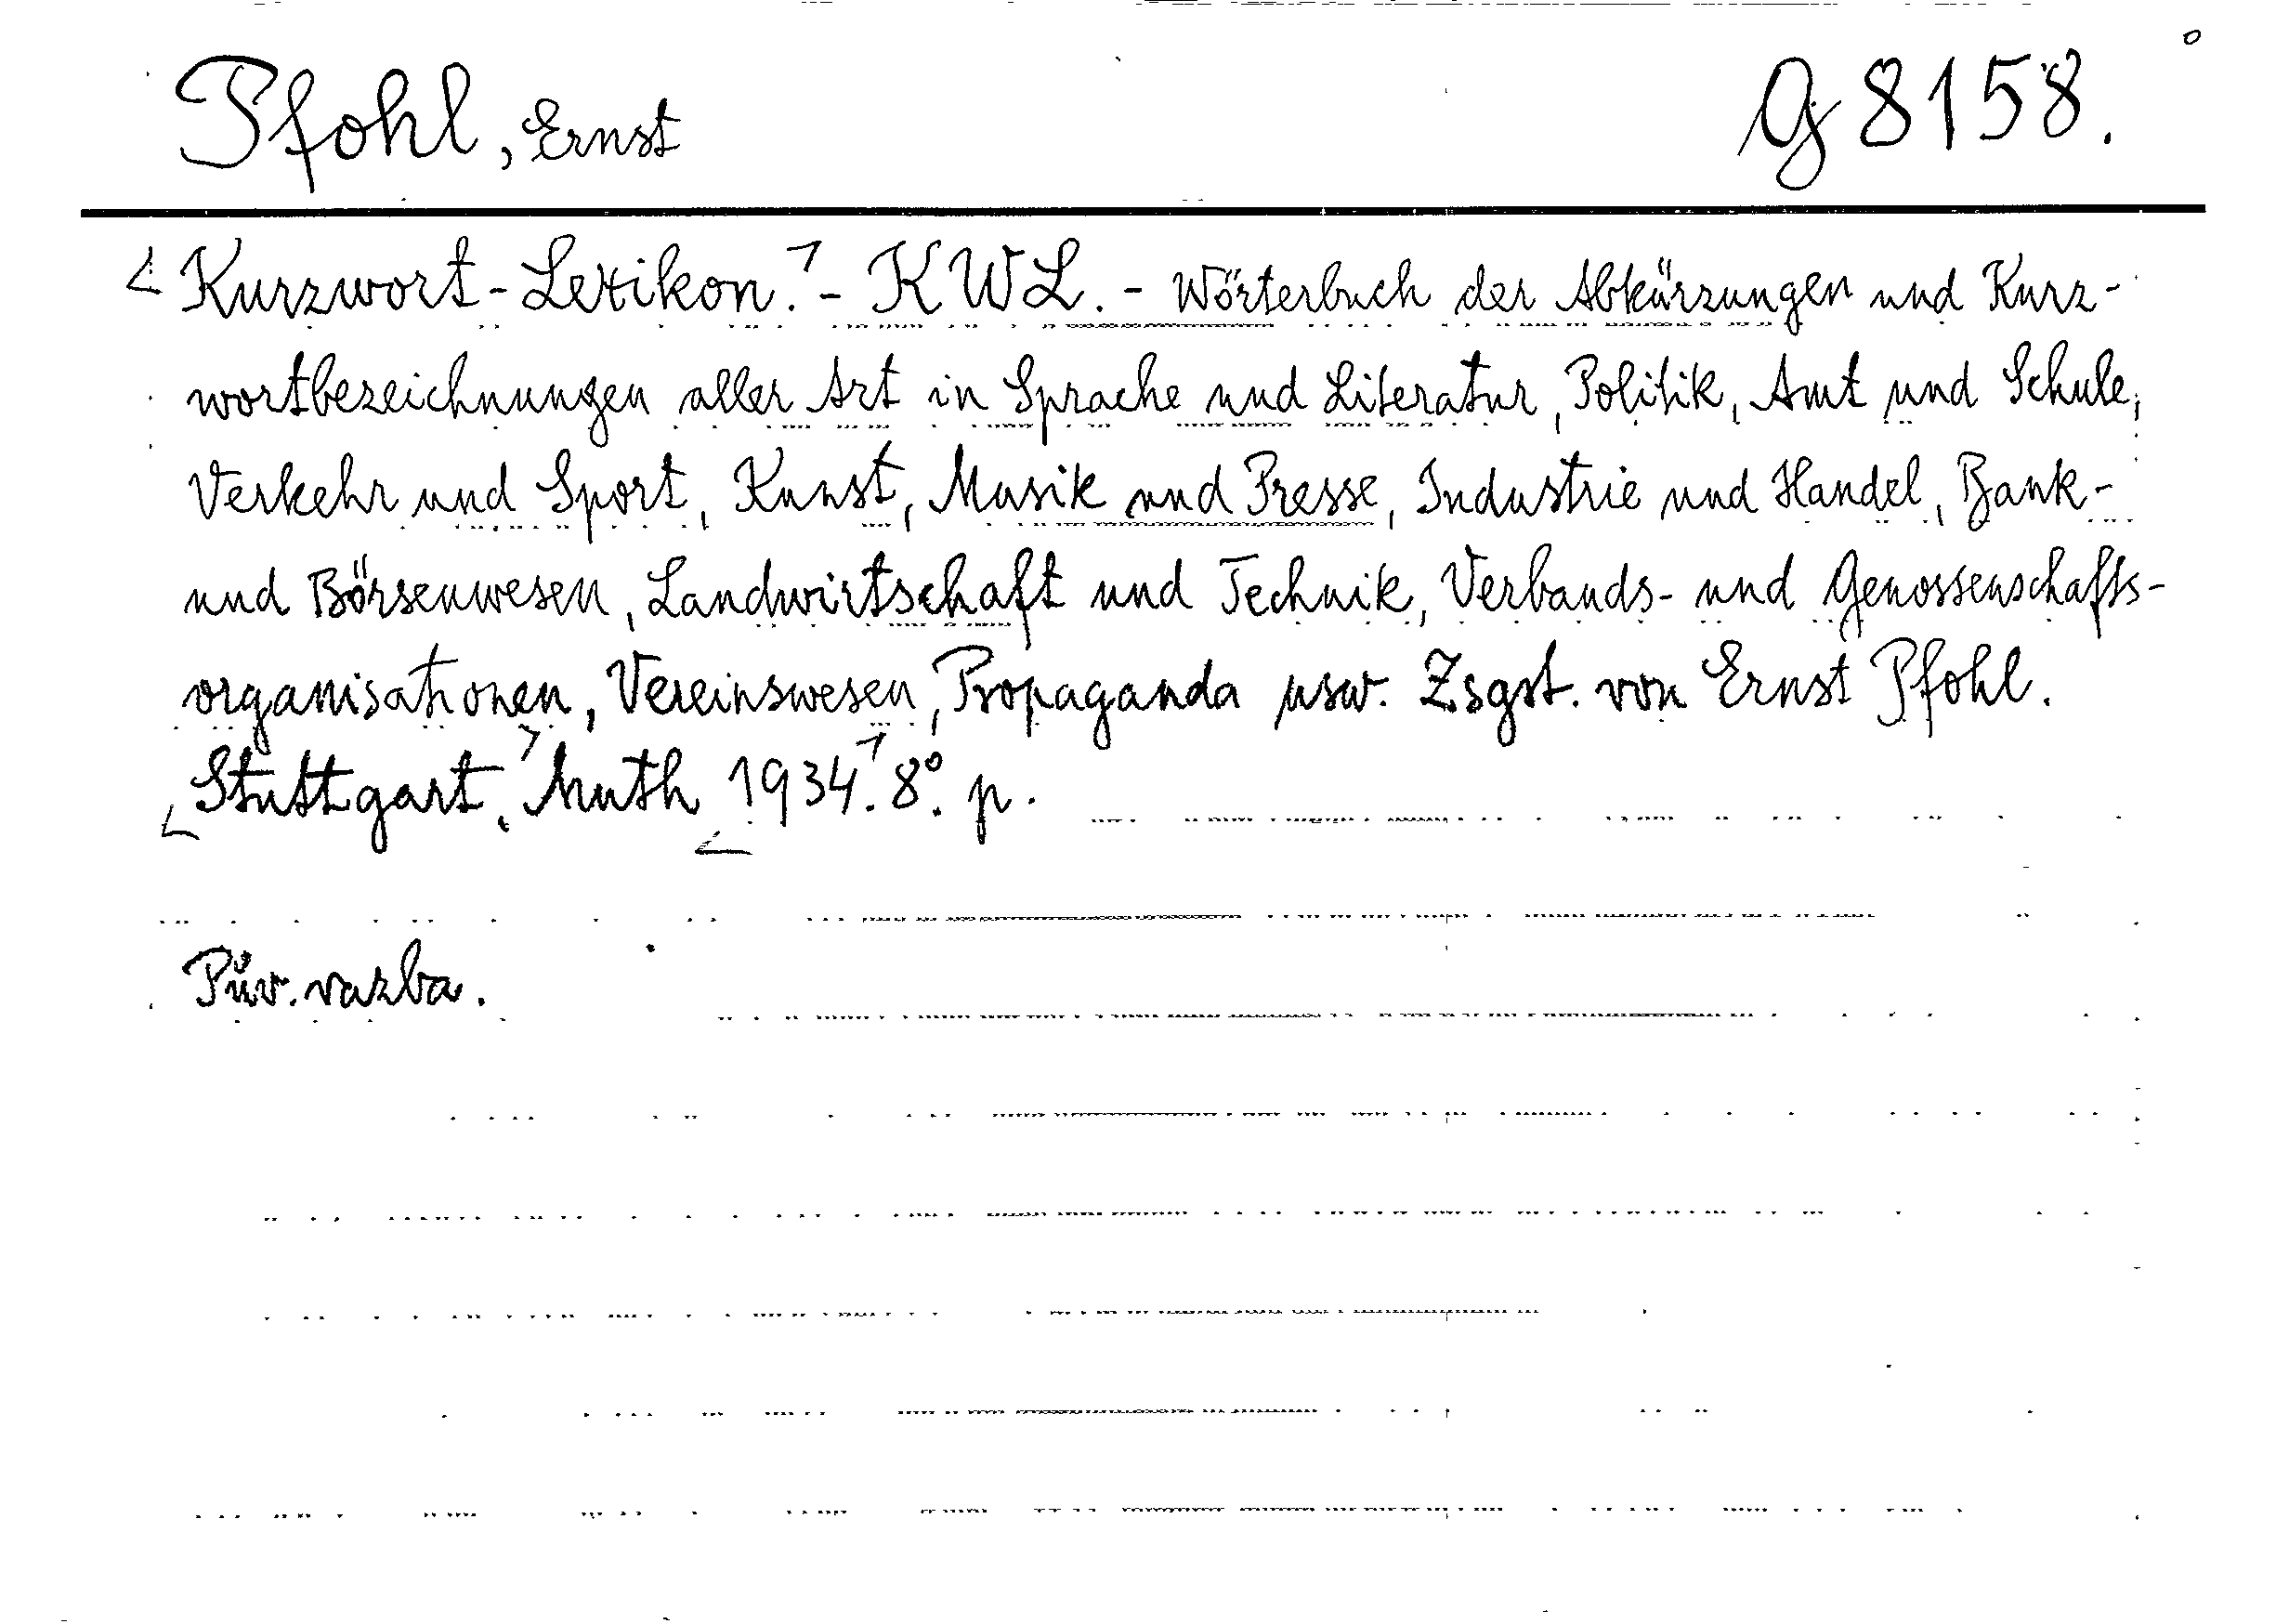 Pfohl, Ernst G 8158.
Kurzwort-Lexikon. - KWL. - Wörterbuch der Abkürzungen und Kurz-
wortbezeichnungen aller Art in Sprache und Literatur, Politik, Amt und Schule,
Verkehr und Sport, Kunst, Musik und Presse, Industrie und Handel, Bank-
und Börsenwesen, Landwirtschaft und Technik, Verbands- und Genossenschafts-
organisationen, Vereinswesen, Propaganda usw. Zsgst. von Ernst Pfohl.
Stuttgart, Muth 1934. 8°. p.
Pův. vazba.